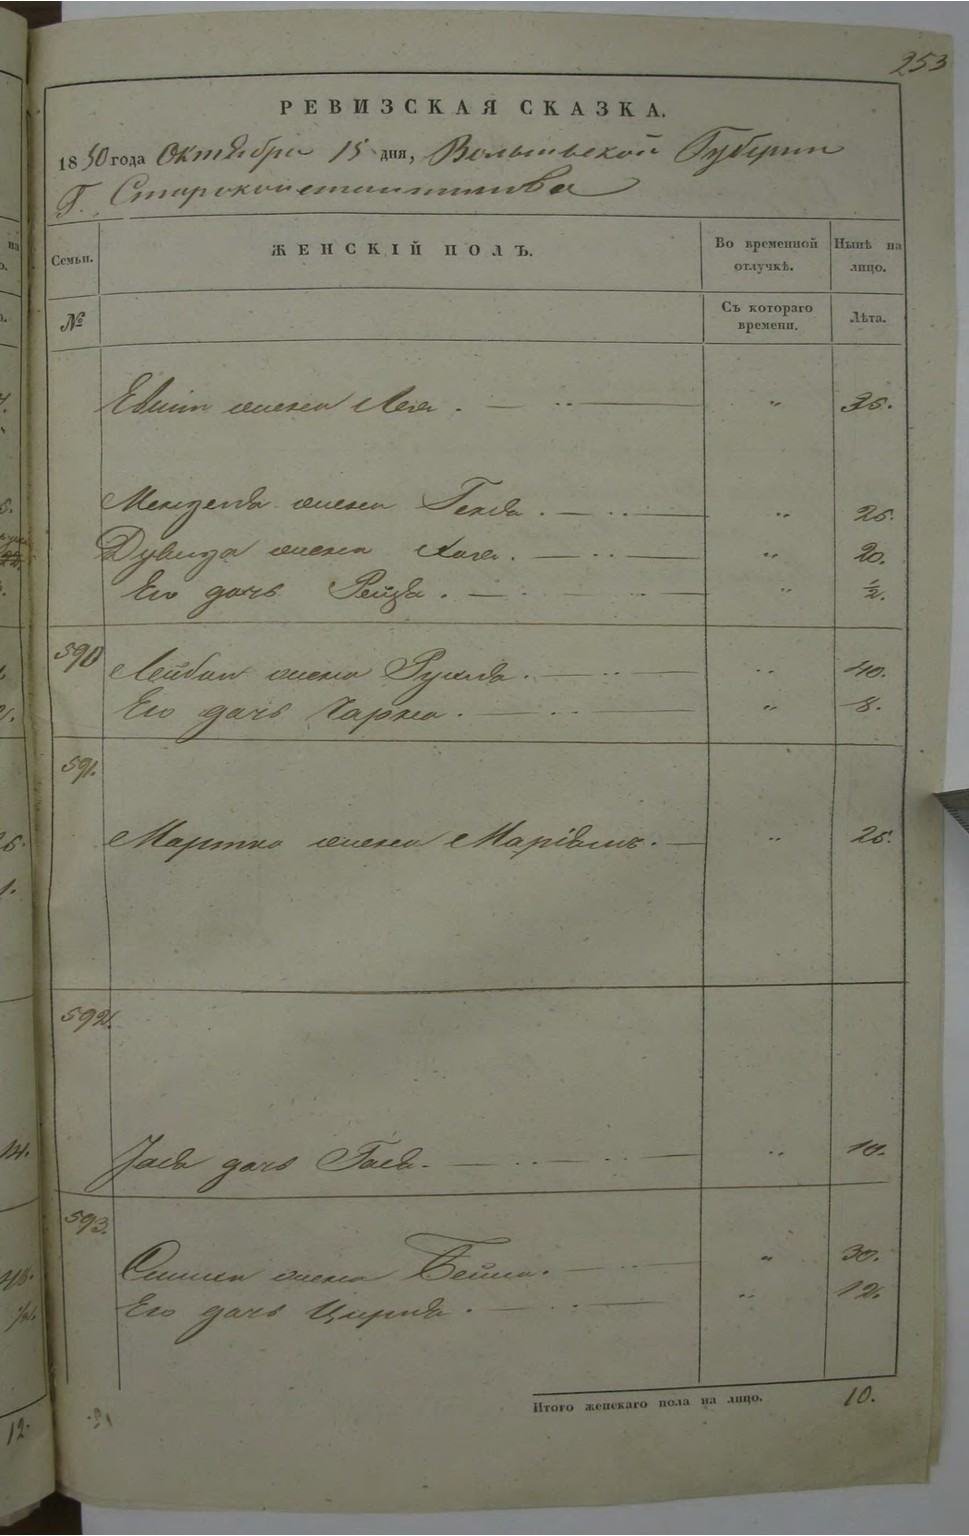 253
РЕВИЗСКАЯ СКАЗКА.
1850 года Октября 15 дня, Волынской Губернии
Г. Староконстантинова
Семьи. ЖЕНСКІЙ ПОЛЪ. Во временной отлучкѣ. Нынѣ на лицо.
№ Съ котораго времени. Лѣта.
жена Лея. 35.
Менделя жена Геня. 25.
Дувида жена Хая. 20.
Его дочь Рейза. ½.
590 Лейбы жена Рухля. 40.
Его дочь Чарна. 8.
591.
жена Маріямъ. 25.
592.
дочь Гася. 10.
593.
жена Бейла. 30.
Его дочь Цирля. 12.
Итого женскаго пола на лицо. 10.
12.